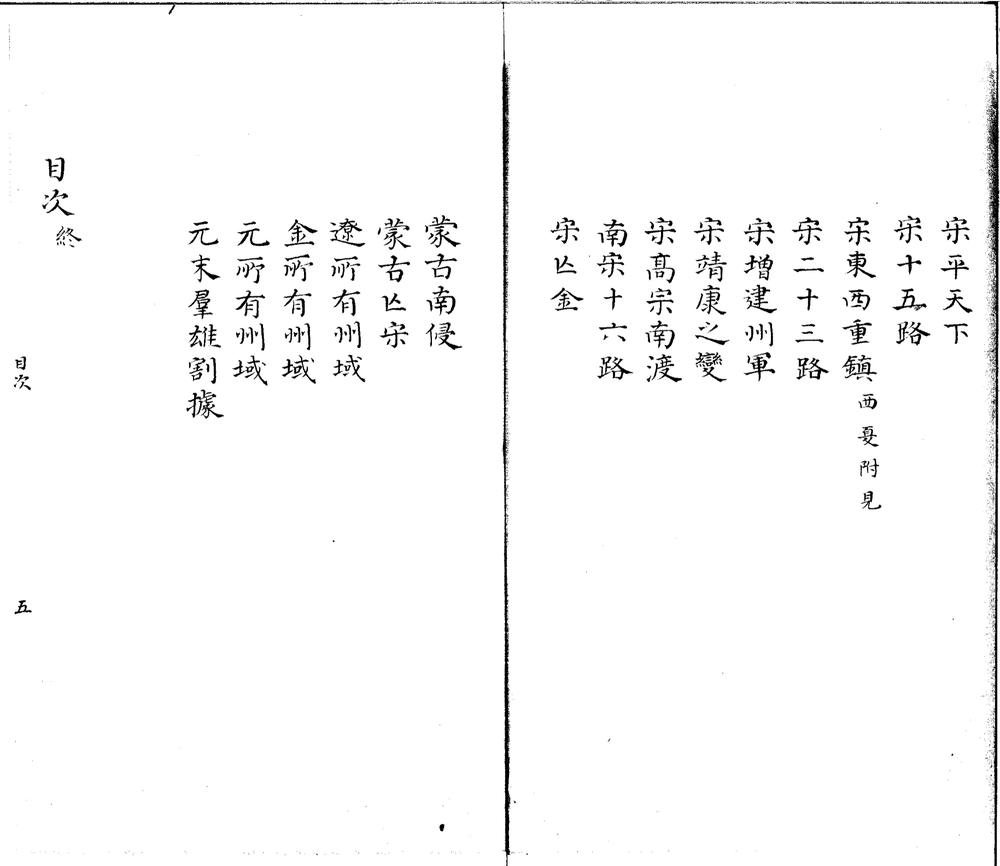 宋平天下
宋十五路
宋東西重鎮 西夏附見
宋二十三路
宋增建州軍
宋靖康之變
宋高宗南渡
南宋十六路
宋亾金
蒙古南侵
蒙古亾宋
遼所有州域
金所有州域
元所有州域
元末羣雄割據
目次終
目次
五